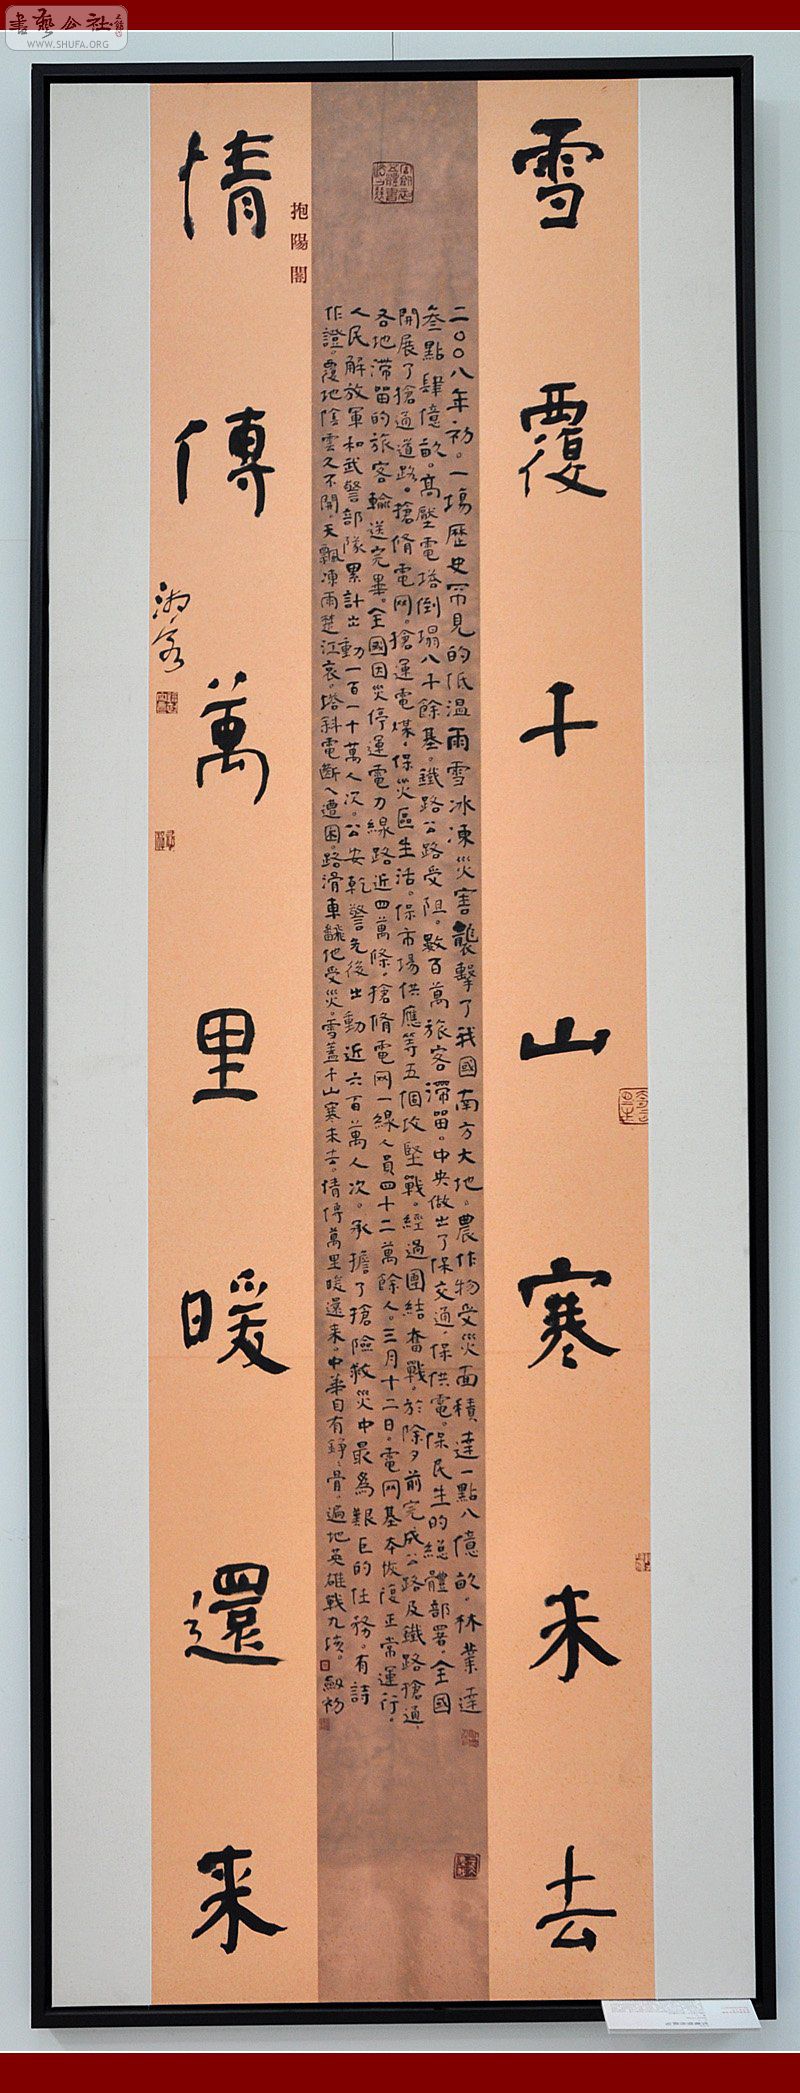 書藝公社
WWW.SHUFA.ORG
雪覆千山寒未去
二〇〇八年初。一場歷史罕見的低溫雨雪冰凍災害襲擊了我國南方大地。農作物受災面積達一點八億畝。林業達
叁點肆億畝。高壓電塔倒塌八千餘基。鐵路公路受阻。數百萬旅客滯留。中央做出了保交通，保供電。保民生的總體部署。全國
開展了搶通道路。搶脩電网。搶運電煤。保災區生活。保市場供應等五個攻堅戰。經過團結奮戰。於除夕前完成公路及鐵路搶通
各地滯留的旅客輸送完畢。全國因災停運電力線路近四萬條。搶脩電网一線人員四十二萬餘人。三月十二日。電网基本恢復正常運行。
人民解放軍和武警部隊累計出動一百一十萬人次。公安乾警先後出動近六百萬人次。承擔了搶險救災中最為艱巨的任務。有詩
作證。覆地陰雲久不開。天飄凍雨楚江哀。塔斜電斷人遭困。路滑車翻他受災。雪蓋千山寒未去。情傳萬里暖還來。中華自有錚錚骨。遍地英雄戰九垓。
情傳萬里暖還來
抱陽閣